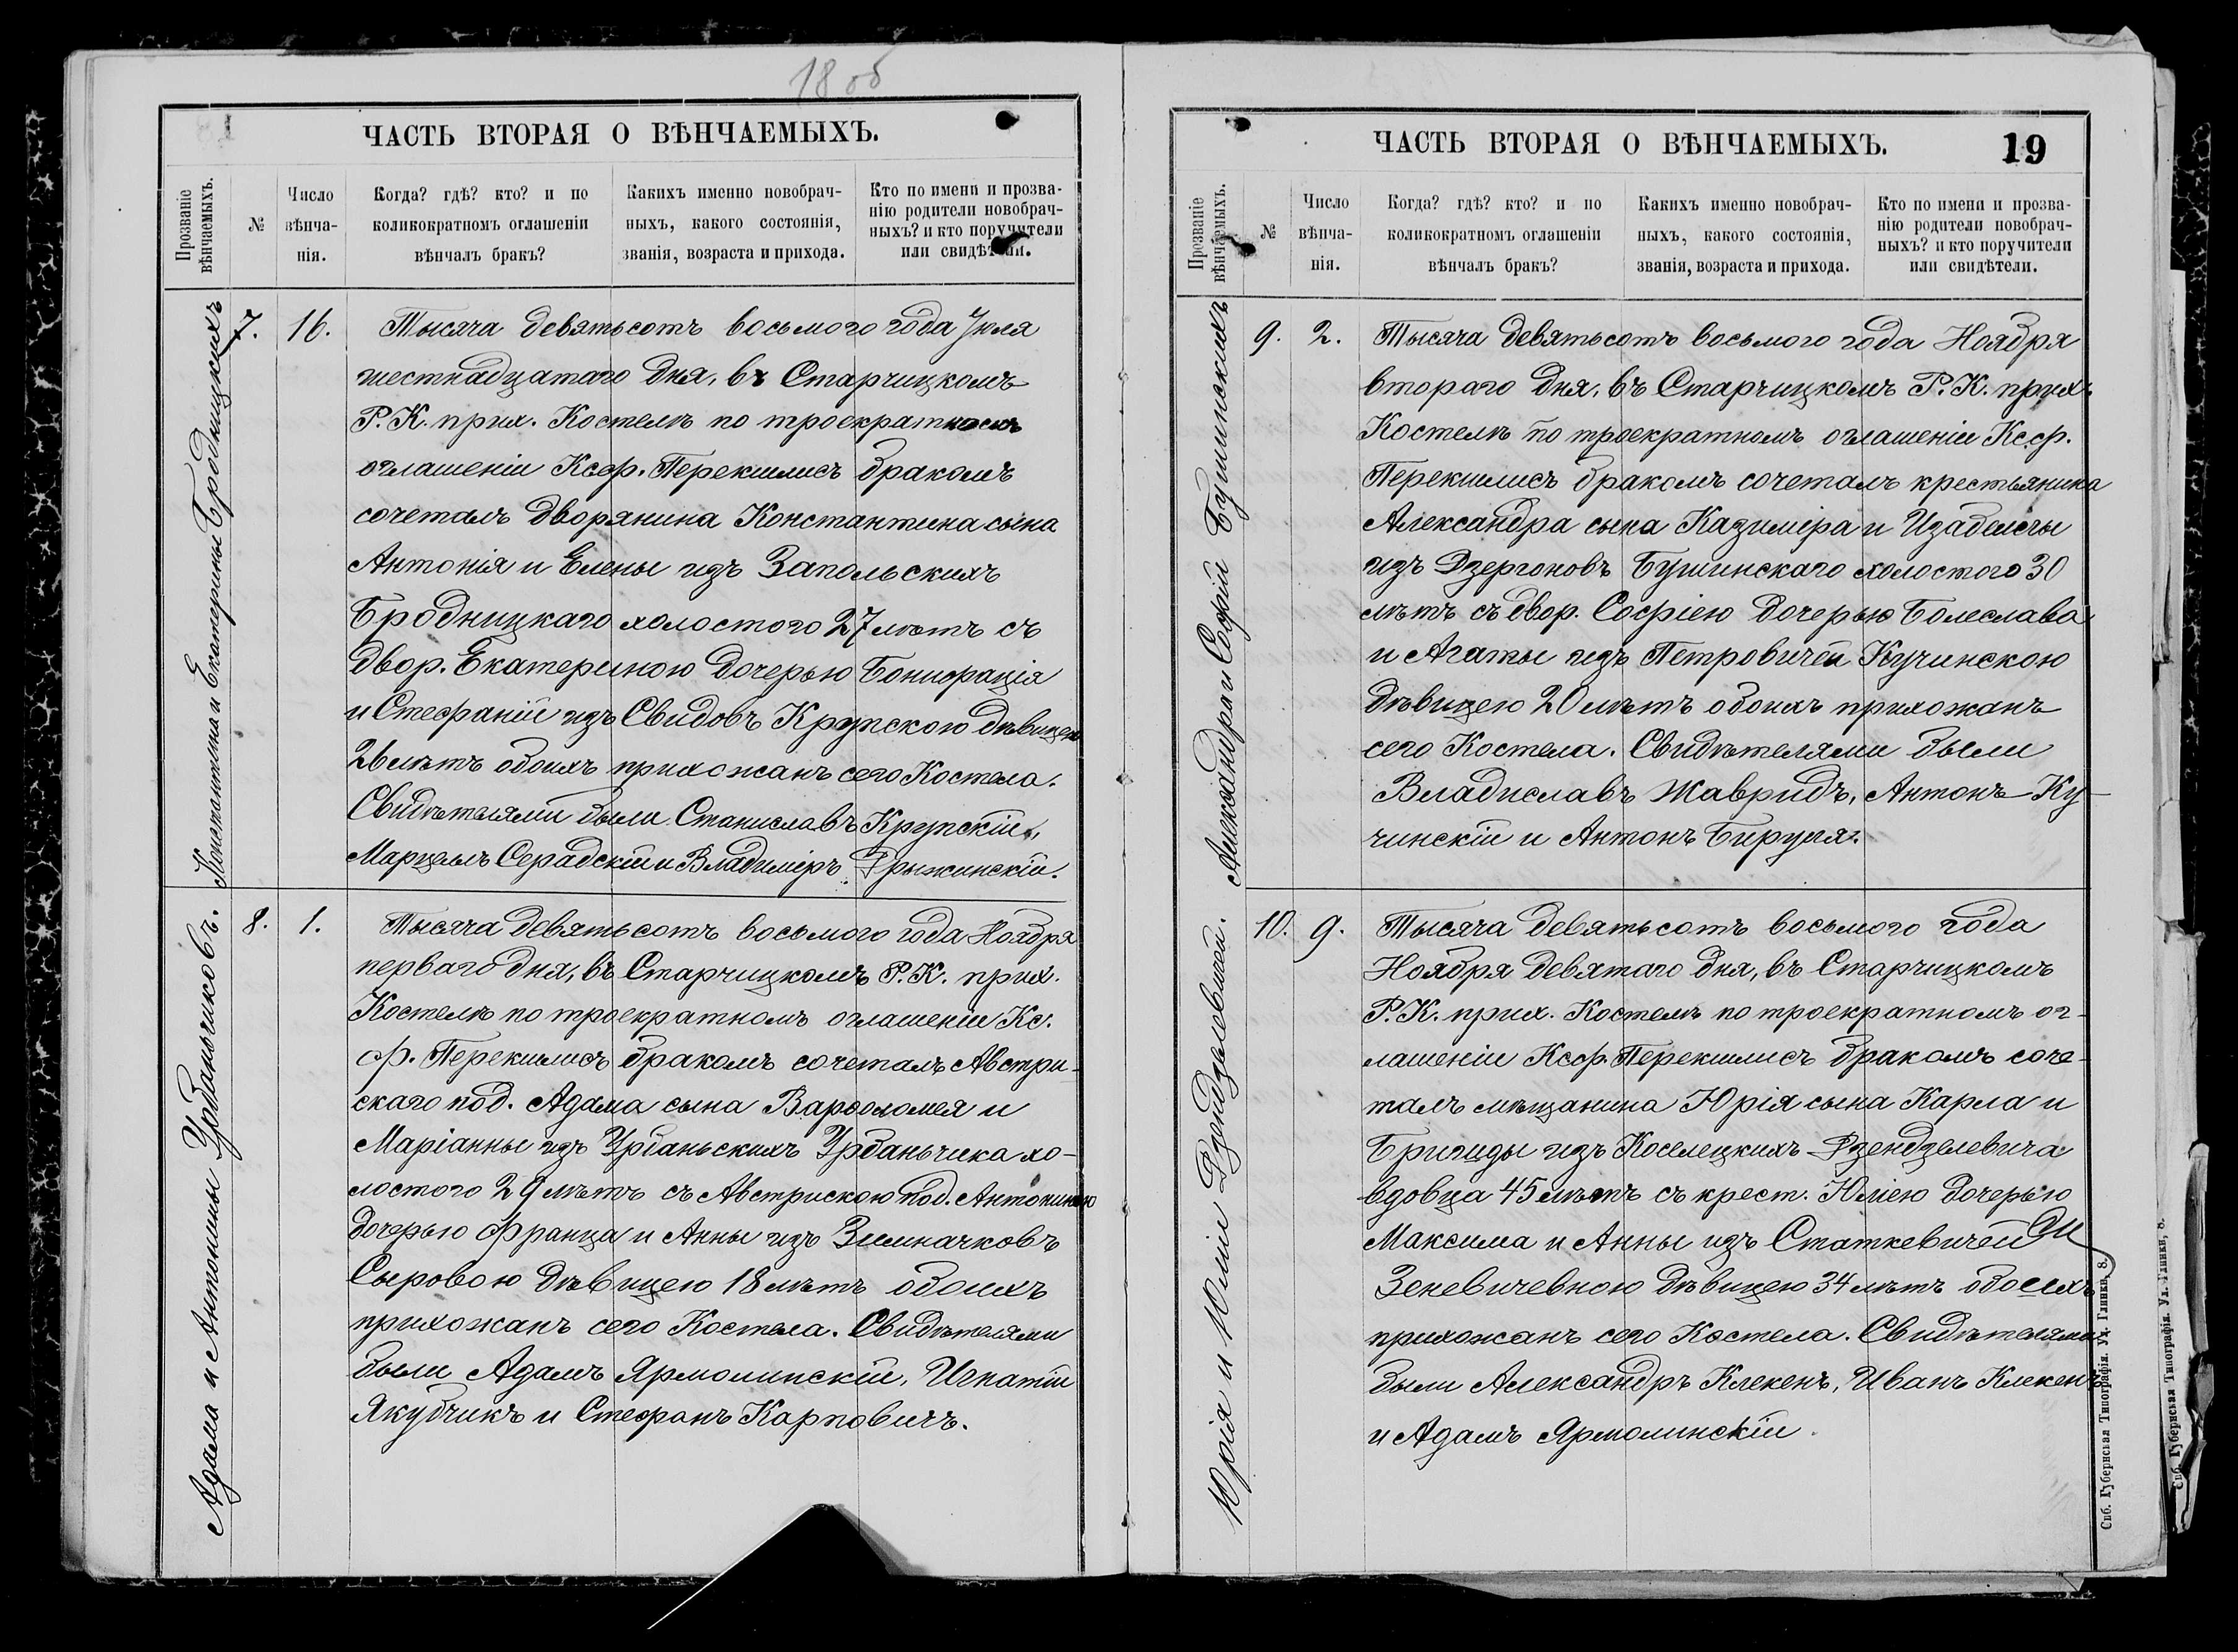 18 об
ЧАСТЬ ВТОРАЯ О ВѢНЧАЕМЫХЪ.
Прозваніе вѣнчаемыхъ.
№
Число вѣнча-нія.
Когда? гдѣ? кто? и по коликократномъ оглашеніи вѣнчалъ бракъ?
Какихъ именно новобрач-ныхъ, какого состоянія, званія, возраста и прихода.
Кто по имени и прозва-нію родители новобрач-ныхъ? и кто поручители или свидѣтели.
Константина и Екатерины Бродницкихъ
7. 16. Тысяча девятьсотъ восьмого года Іюля
шестнадцатаго дня, въ Старчицкомъ
Р. К. прих. Костелѣ по троекратномъ
оглашеніи Ксф. Перекшлисъ бракомъ
сочеталъ дворянина Константина сына
Антонія и Елены изъ Запольскихъ
Бродницкаго холостого 27 лѣтъ съ
двор. Екатериною дочерью Бонифація
и Стефаніи изъ Свидовъ Крупскою дѣвицею
26 лѣтъ обоихъ прихожанъ сего Костела.
Свидѣтелями были Станиславъ Крупскій,
Марцелъ Серадскій и Владиміръ Дрыжинскій.
Адама и Антонины Урбаньчиковъ.
8. 1. Тысяча девятьсотъ восьмого года Ноября
перваго дня, въ Старчицкомъ Р. К. прих.
Костелѣ по троекратномъ оглашеніи Кс.
ф. Перекшлисъ бракомъ сочеталъ Австрі-
скаго под. Адама сына Варфоломея и
Маріанны изъ Урбаньскихъ Урбаньчика хо-
лостого 29 лѣтъ съ Австрискою под. Антониною
дочерью Франца и Анны изъ Зимначковъ
Сыровою дѣвицею 18 лѣтъ обоихъ
прихожанъ сего Костела. Свидѣтелями
были Адамъ Ярмолинскій, Игнатій
Якубчикъ и Стефанъ Карповичъ.
ЧАСТЬ ВТОРАЯ О ВѢНЧАЕМЫХЪ.
19
Прозваніе вѣнчаемыхъ.
№
Число вѣнча-нія.
Когда? гдѣ? кто? и по коликократномъ оглашеніи вѣнчалъ бракъ?
Какихъ именно новобрач-ныхъ, какого состоянія, званія, возраста и прихода.
Кто по имени и прозва-нію родители новобрач-ныхъ? и кто поручители или свидѣтели.
Александра и Софіи Бушинскихъ
9. 2. Тысяча девятьсотъ восьмого года Ноября
втораго дня, въ Старчицкомъ Р. К. прих.
Костелѣ по троекратномъ оглашеніи Ксф.
Перекшлисъ бракомъ сочеталъ крестьянина
Александра сына Казиміра и Изабеллы
изъ Дзергоновъ Бушинскаго холостого 30
лѣтъ съ двор. Софіею дочерью Болеслава
и Агаты изъ Петровичей Кучинскою
дѣвицею 20 лѣтъ обоихъ прихожанъ
сего Костела. Свидѣтелями были
Владиславъ Жавридъ, Антонъ Ку-
чинскій и Антонъ Бируля.
Юрія и Юліи Дзендзелевичей.
10. 9. Тысяча девятьсотъ восьмого года
Ноября девятаго дня, въ Старчицкомъ
Р. К. прих. Костелѣ по троекратномъ ог-
лашеніи Ксф. Перекшлисъ бракомъ соче-
талъ мѣщанина Юрія сына Карла и
Бригиды изъ Коселецкихъ Дзендзелевича
вдовца 45 лѣтъ съ крест. Юліею дочерью
Максима и Анны изъ Статкевичей
Зеневичевною дѣвицею 34 лѣтъ обоихъ
прихожанъ сего Костела. Свидѣтелями
были Александръ Клекенъ, Иванъ Клекенъ
и Адамъ Ярмолинскій.
Спб. Губернская Типографія. Ул. Глинки, 8.
Спб. Губернская Типографія. Ул. Глинки, 8.